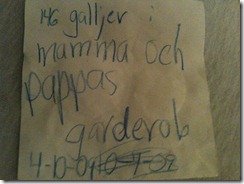 146 galljer i
mamma och
pappas
garderob
4-10-09